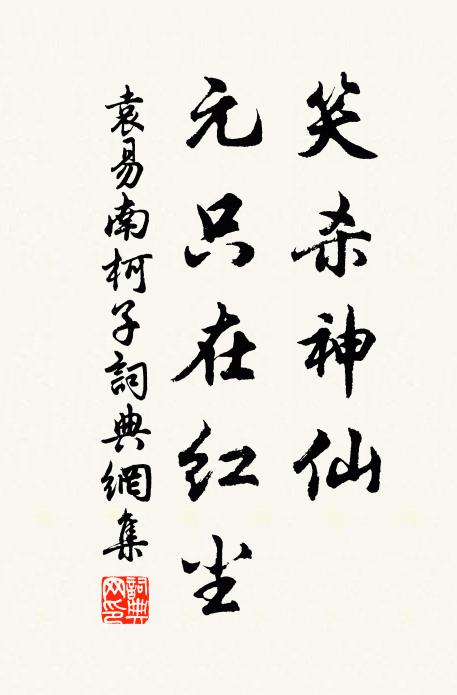 笑杀神仙
元只在红尘
袁易南柯子詞典網集
詞典網印